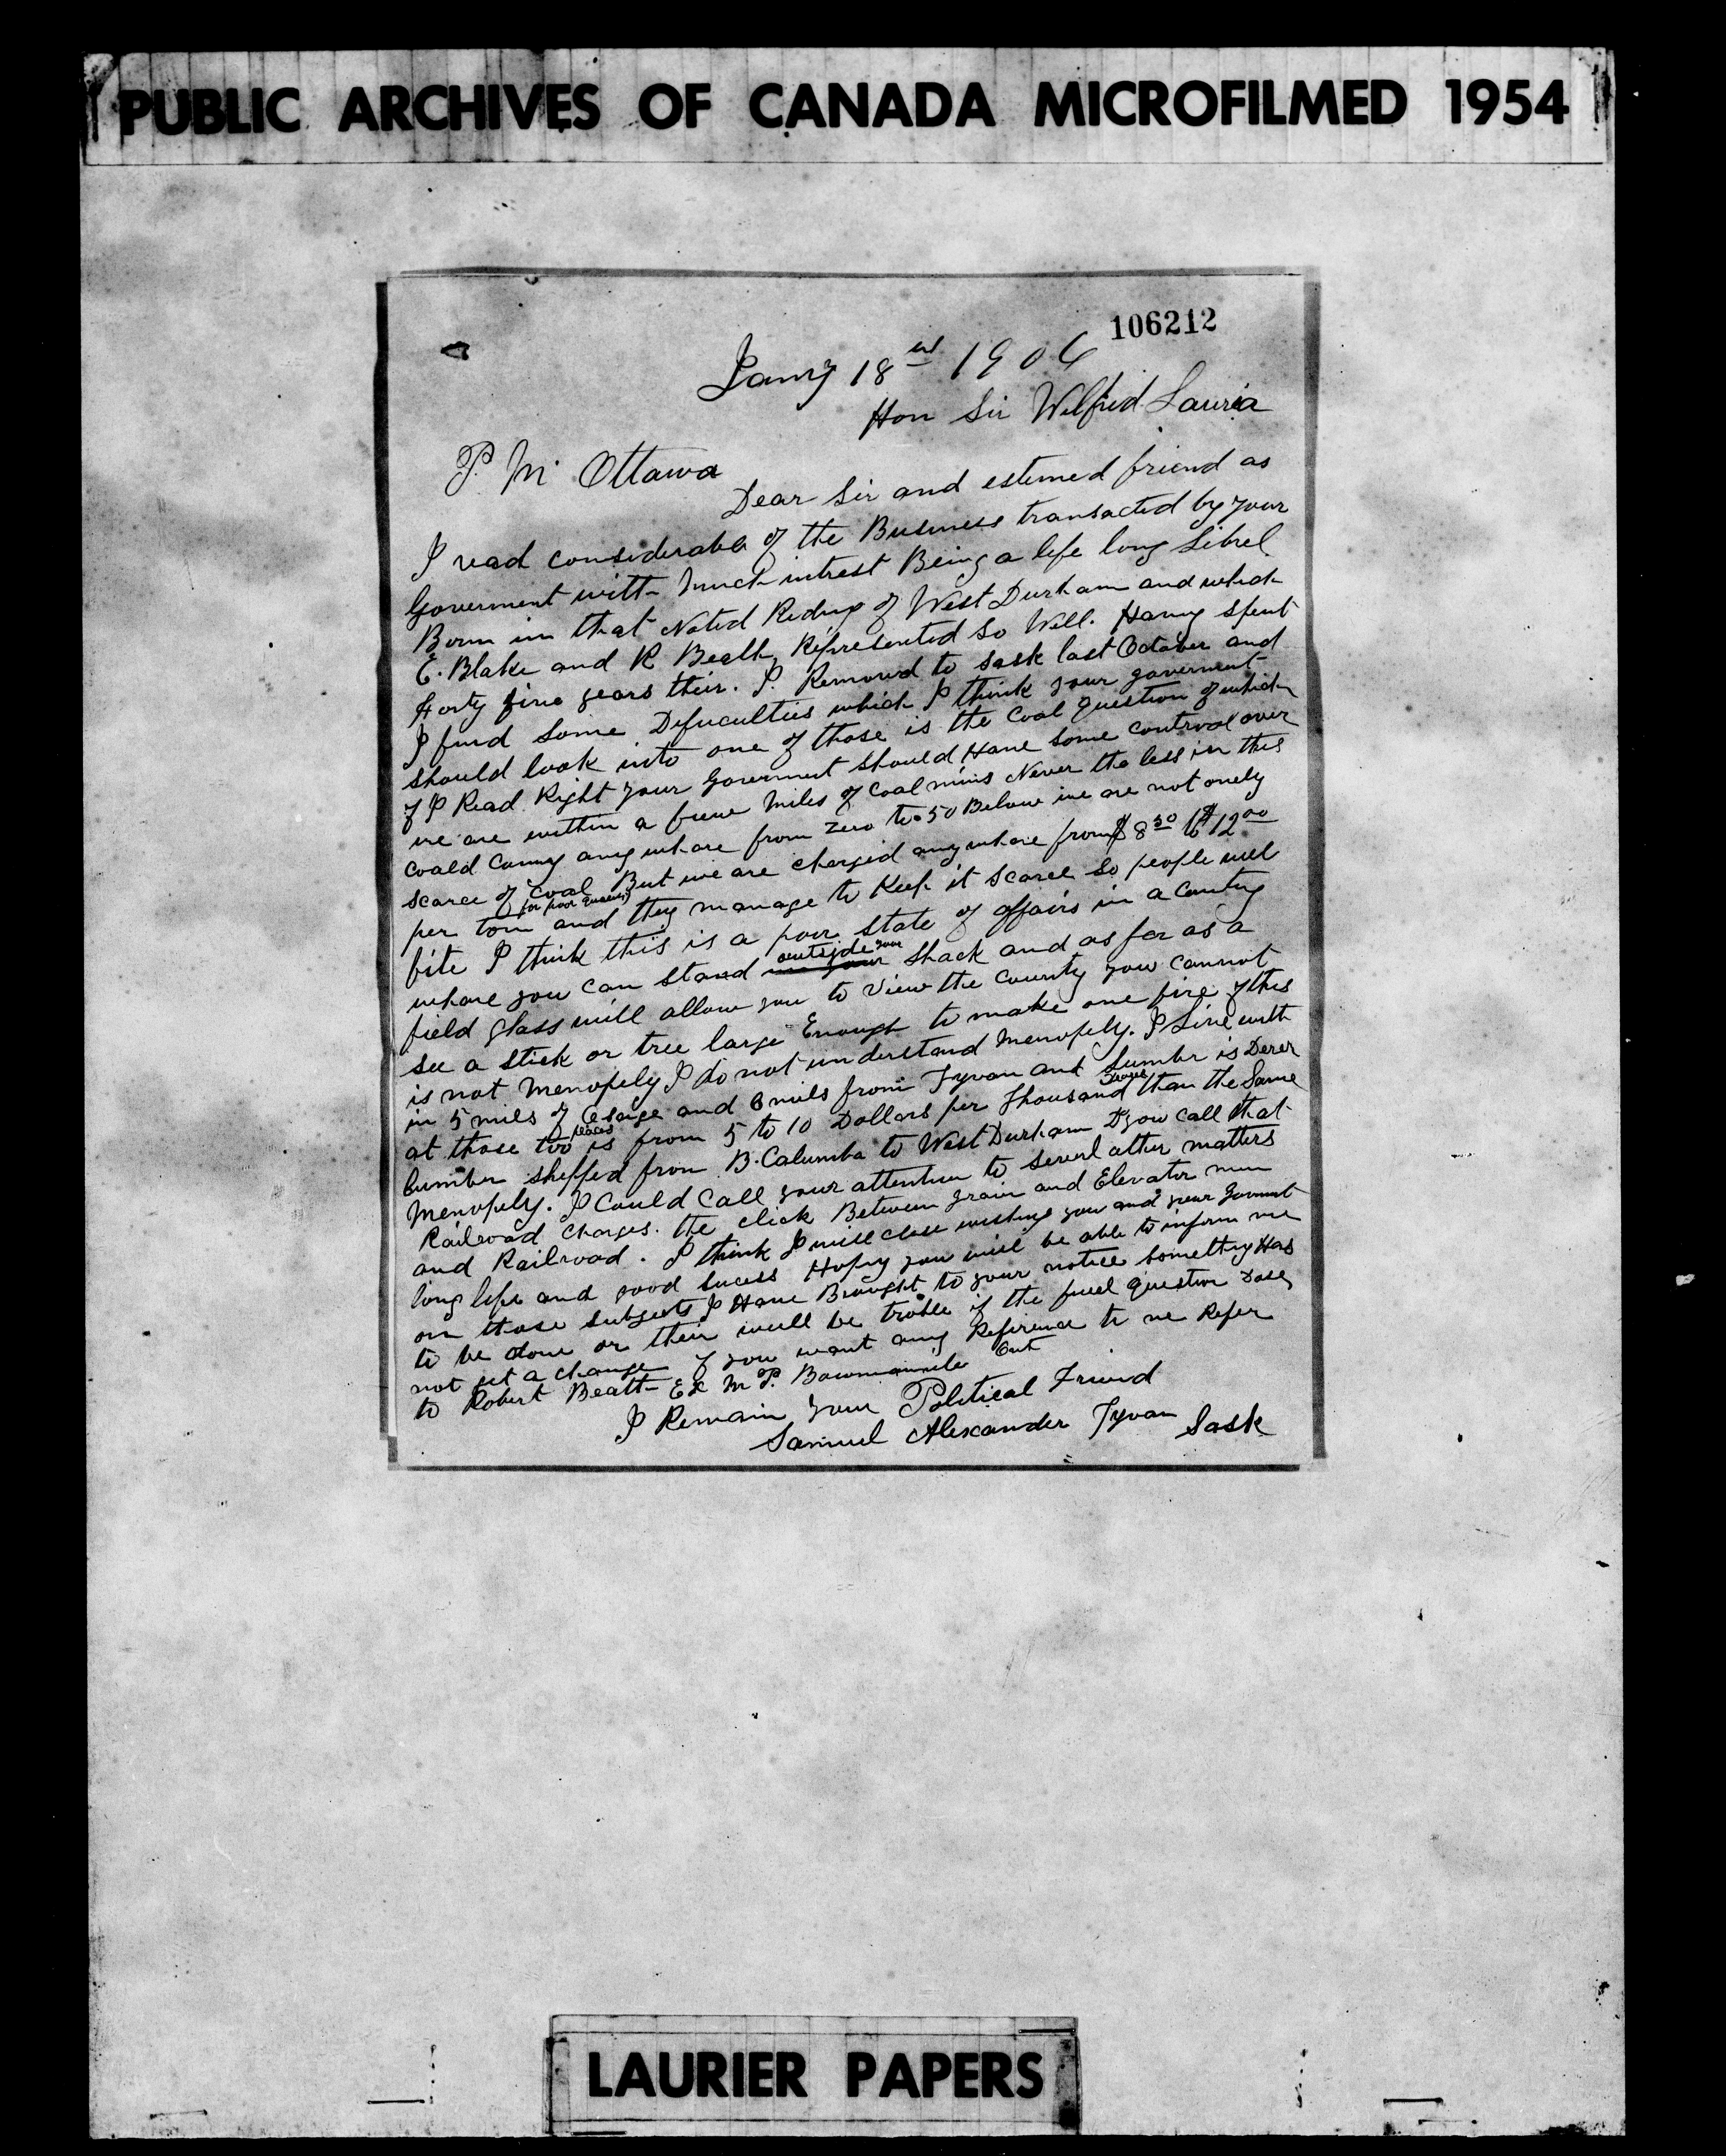 PUBLIC ARCHIVES OF CANADA MICROFILMED 1954
106212
Jany 18 1906
Hon Sir Wilfrid Lauria
P. M. Ottawa
Dear Sir and estemed friend as
I read considerable of the Business transacted by your
Goverment with Much intrest Being a life long Librel
Born in that Noted Riding of West Durham and which
E. Blake and R Beath Represented So Well. Having Spent
Forty five years their. I Removed to Sask last October and
I find Some Dificulties which I think your goverment
should look into one of those is the Coal question of which
if I Read Right your Goverment Should Have Some controal over
we are within a fiew Miles of Coal mins Never the less in this
coald Cuntry any whare from Zero to 50 Below we are not onely
scarce of Coal But we are charged any whare from $ 8 50 to $ 12 00
per ton for poor quality and they manage to Keep it scarce So people will
bite I think this is a poor State of affairs in a Cuntry
whare you can stand in your outside your Shack and as far as a
field glass will allow you to View the County you cannot
see a stick or tree large Enough to make one fire if this
is not Menopely I do not understand Menopely. I Live with
in 5 mils of and 6 mils from Tyvan and Lumbr is Derer
at those two places is from 5 to 10 Dollars per Thousand than the Same
lumber shipped from B. Calumba to West Durham D you call that
Menopely. I Could Call your attention to severl other matters
Railroad Charges. the click Between grain and Elevator men
and Railroad. I think I will close wishing you and your Goverment
long life and good sucess Hoping you will be able to inform me
on those Subjects I Have Brought to your notice Somethng Has
to be done or their will be troble if the fuel question Dose
not get a change if you want any Reference to me Refer
to Robert Beath Ex M. P. Bowmanvile Ont
I Remain your Political Friend
Samuel Alexander Tyvan Sask
LAURIER PAPERS